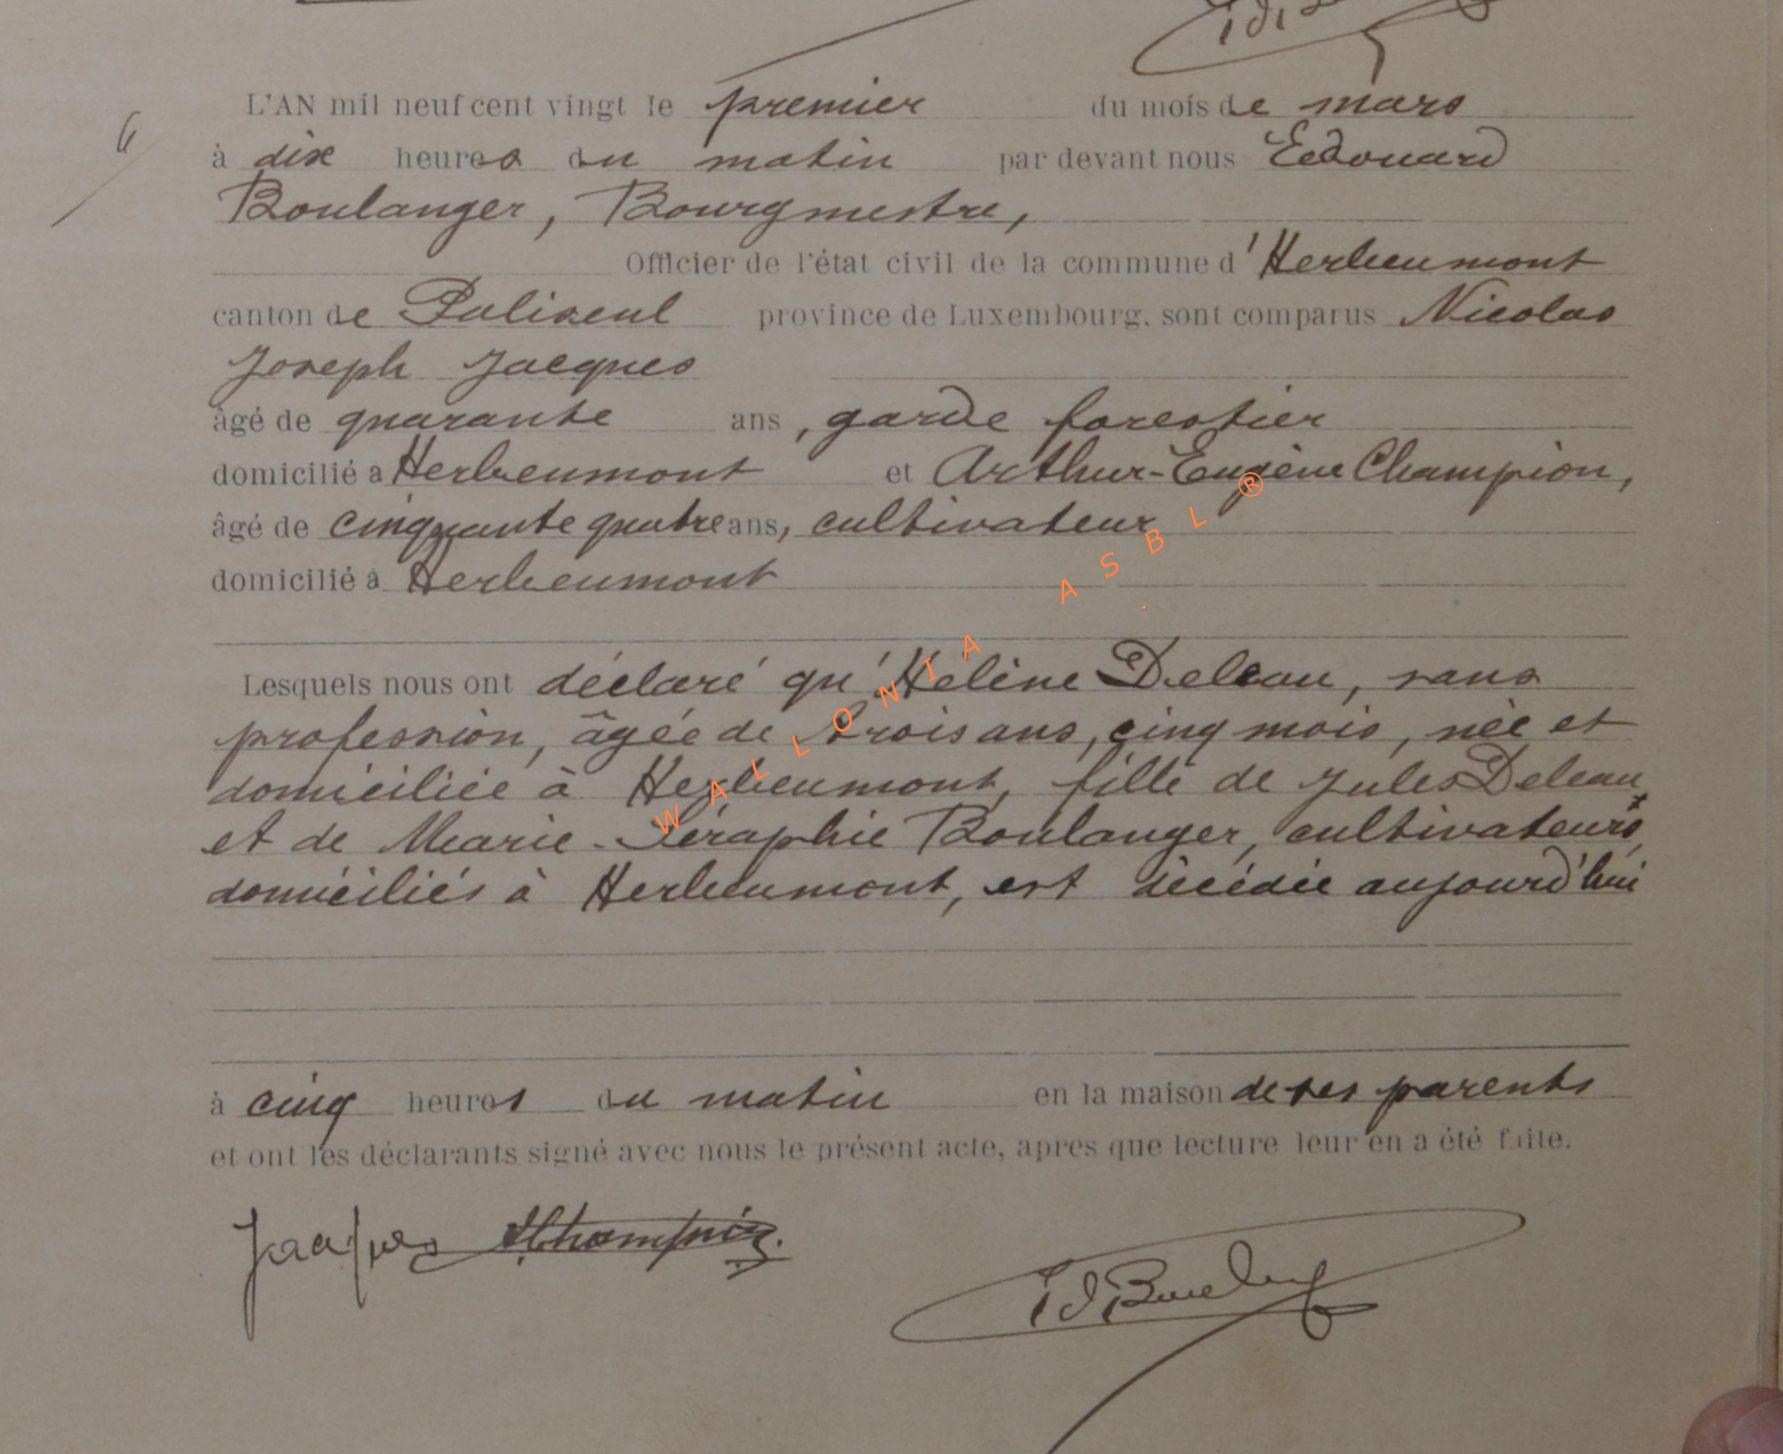 6
L'AN mil neuf cent vingt le premier du mois de mars
à dix heures du matin par devant nous Edouard
Boulanger, Bourgmestre,
Officier de l'état civil de la commune d'Herbeumont
canton de Paliseul province de Luxembourg, sont comparus Nicolas
Joseph Jacques
âgé de quarante ans, garde forestier
domicilié à Herbeumont et Arthur-Eugène Champion,
âgé de cinquante quatre ans, cultivateur
domicilié à Herbeumont
Lesquels nous ont déclaré qu'Hélène Deleau, sans
profession, âgée de trois ans, cinq mois, née et
domiciliée à Herbeumont, fille de Jules Deleau
et de Marie-Séraphie Boulanger, cultivateurs,
domiciliés à Herbeumont, est décédée aujourd'hui
à cinq heures du matin en la maison de ses parents
et ont les déclarants signé avec nous le présent acte, après que lecture leur en a été faite.
Jacques AChampion
Ed Boulanger
WALLONIA ASBL ®